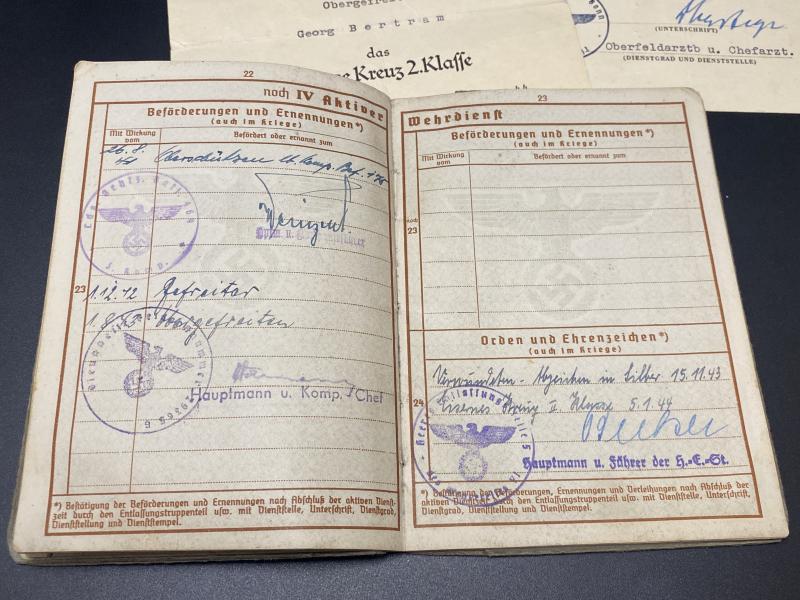 Obergefrei
Georg Bertram
das
e Kreuz 2.Klasse
(UNTERSCHRIFT)
Oberfeldarztb u. Chefarzt.
(DIENSTGRAD UND DIENSTSTELLE)
22
noch IV Aktiver
Beförderungen und Ernennungen*)
(auch im Kriege)
Mit Wirkung vom
Befördert oder ernannt zum
26.8.
Oberschützen
23
1.12.42 Gefreiter
Obergefreiten
Hauptmann u. Komp. Chef
*) Bestätigung der Beförderungen und Ernennungen nach Abschluß der aktiven Dienst-
zeit durch den Entlassungstruppenteil usw. mit Dienststelle, Unterschrift, Dienstgrad,
Dienststellung und Dienststempel.
23
Wehrdienst
Beförderungen und Ernennungen*)
(auch im Kriege)
Mit Wirkung vom
Befördert oder ernannt zum
noch
23
Orden und Ehrenzeichen*)
(auch im Kriege)
Verwundeten-Abzeichen in Silber 15.11.43
24
Eisernes Kreuz II Klasse 5.1.44
Hauptmann u. Führer der H.-E.-St.
*) Bestätigung der Beförderungen, Ernennungen und Verleihungen nach Abschluß der
aktiven Dienstzeit durch den Entlassungstruppenteil usw. mit Dienststelle, Unterschrift,
Dienstgrad, Dienststellung und Dienststempel.